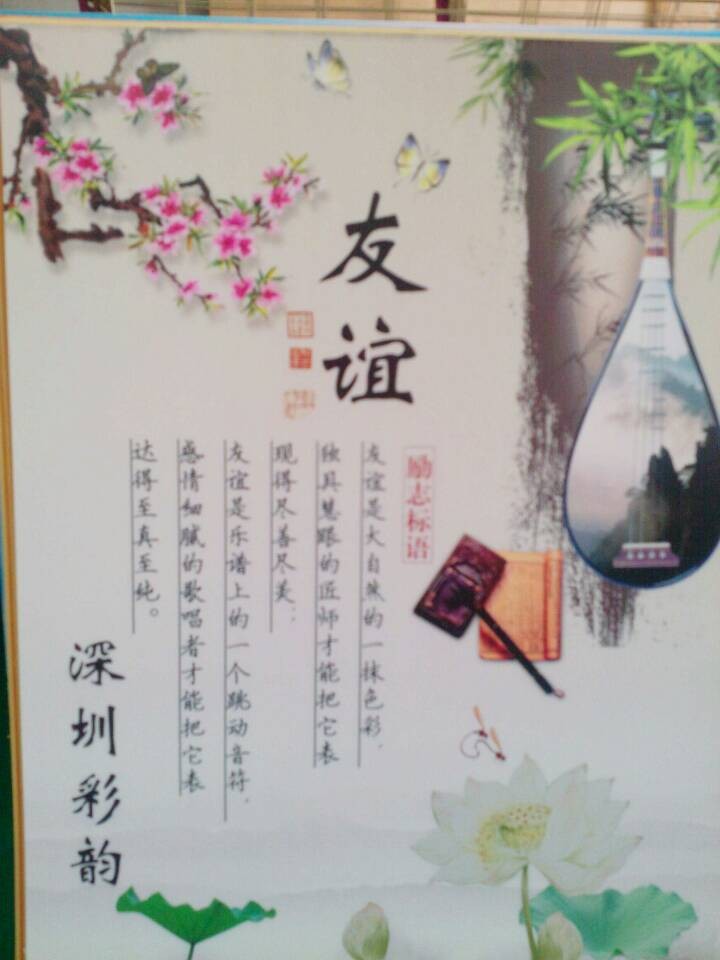 友谊
励志标语
友谊是大自然的一抹色彩，
独具慧眼的匠师才能把它表
现得尽善尽美；
友谊是乐谱上的一个跳动音符，
感情细腻的歌唱者才能把它表
达得至真至纯。
深圳彩韵